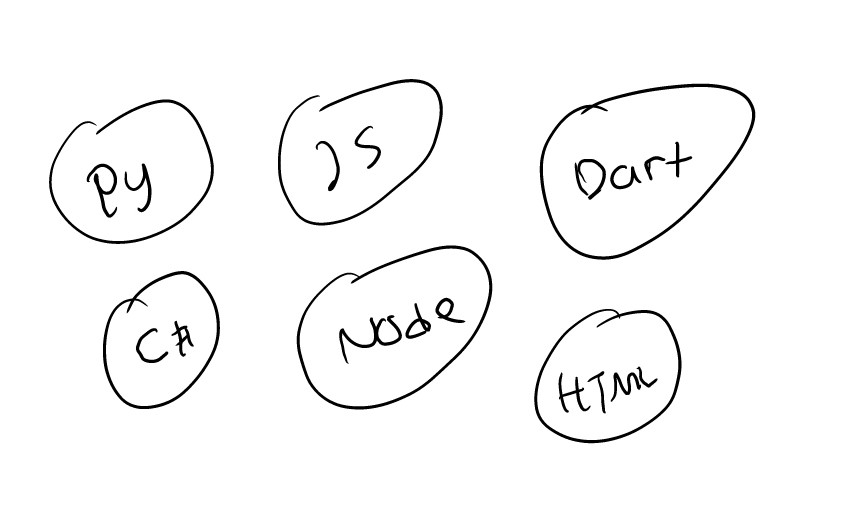 Py
JS
Dart
C#
Node
HTML